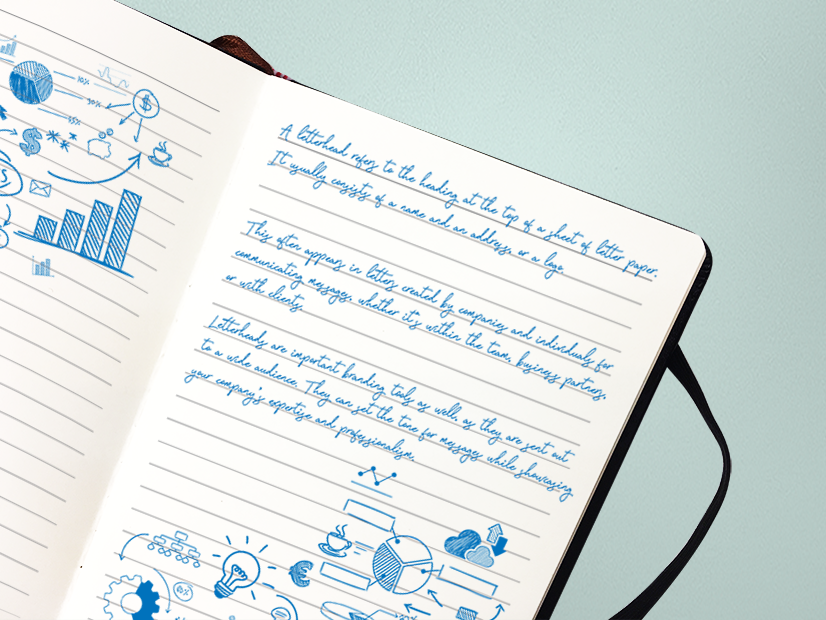 10%
30%
55%
$
$
A letterhead refers to the heading at the top of a sheet of letter paper.
It usually consists of a name and an address, or a logo.
This often appears in letters created by companies and individuals for
communicating messages, whether it's within the team, business partners,
or with clients.
Letterheads are important branding tools as well, as they are sent out
to a wide audience. They can set the tone for messages while showcasing
your company's expertise and professionalism.
€